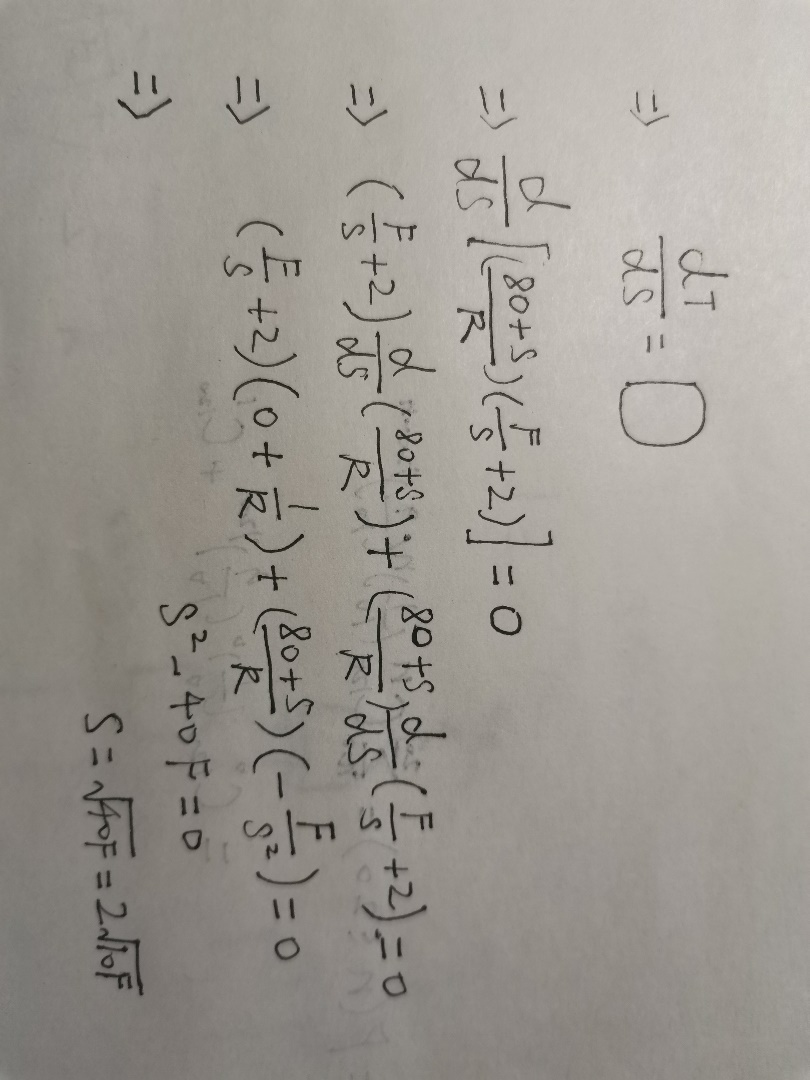 ⇒ dT/dS = 0
⇒ d/dS [(80+S/R)(F/S +2)] = 0
⇒ (F/S +2) d/dS (80+S/R) + (80+S/R) d/dS (F/S +2) = 0
⇒ (F/S +2)(0 + 1/R) + (80+S/R)(- F/S²) = 0
⇒ S² - 40F = 0
S = √40F = 2√10F